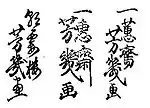 一蕙齋芳幾画
一蕙齋芳幾画
朝霞楼
芳幾画